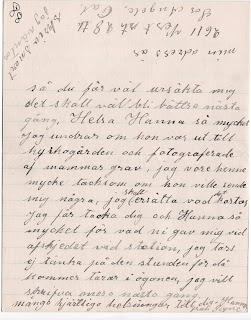 så du får väl ursäkta mig
det skall väl bli bättre nästa
gång, Helsa Hanna så mycket
jag undrar om hon var ut till
kyrkogården och fotograferade
af mammas graf, jag vore henne
mycke tacksom om hon ville sende
mig några, jag skall ersätta vad kostar
jag får tacka dig och Hanna så
mycket för vad ni gav mig vid
afskjedet vid station, jag törs
ej tänka på den stunden för då
kommer tårar i ögonen, jag vill
skrifva mera nästa gång.
många hjärtliga helsningar till dig Hanna
min adress är
2611 West
Los Angeles. Cal
skrif snart